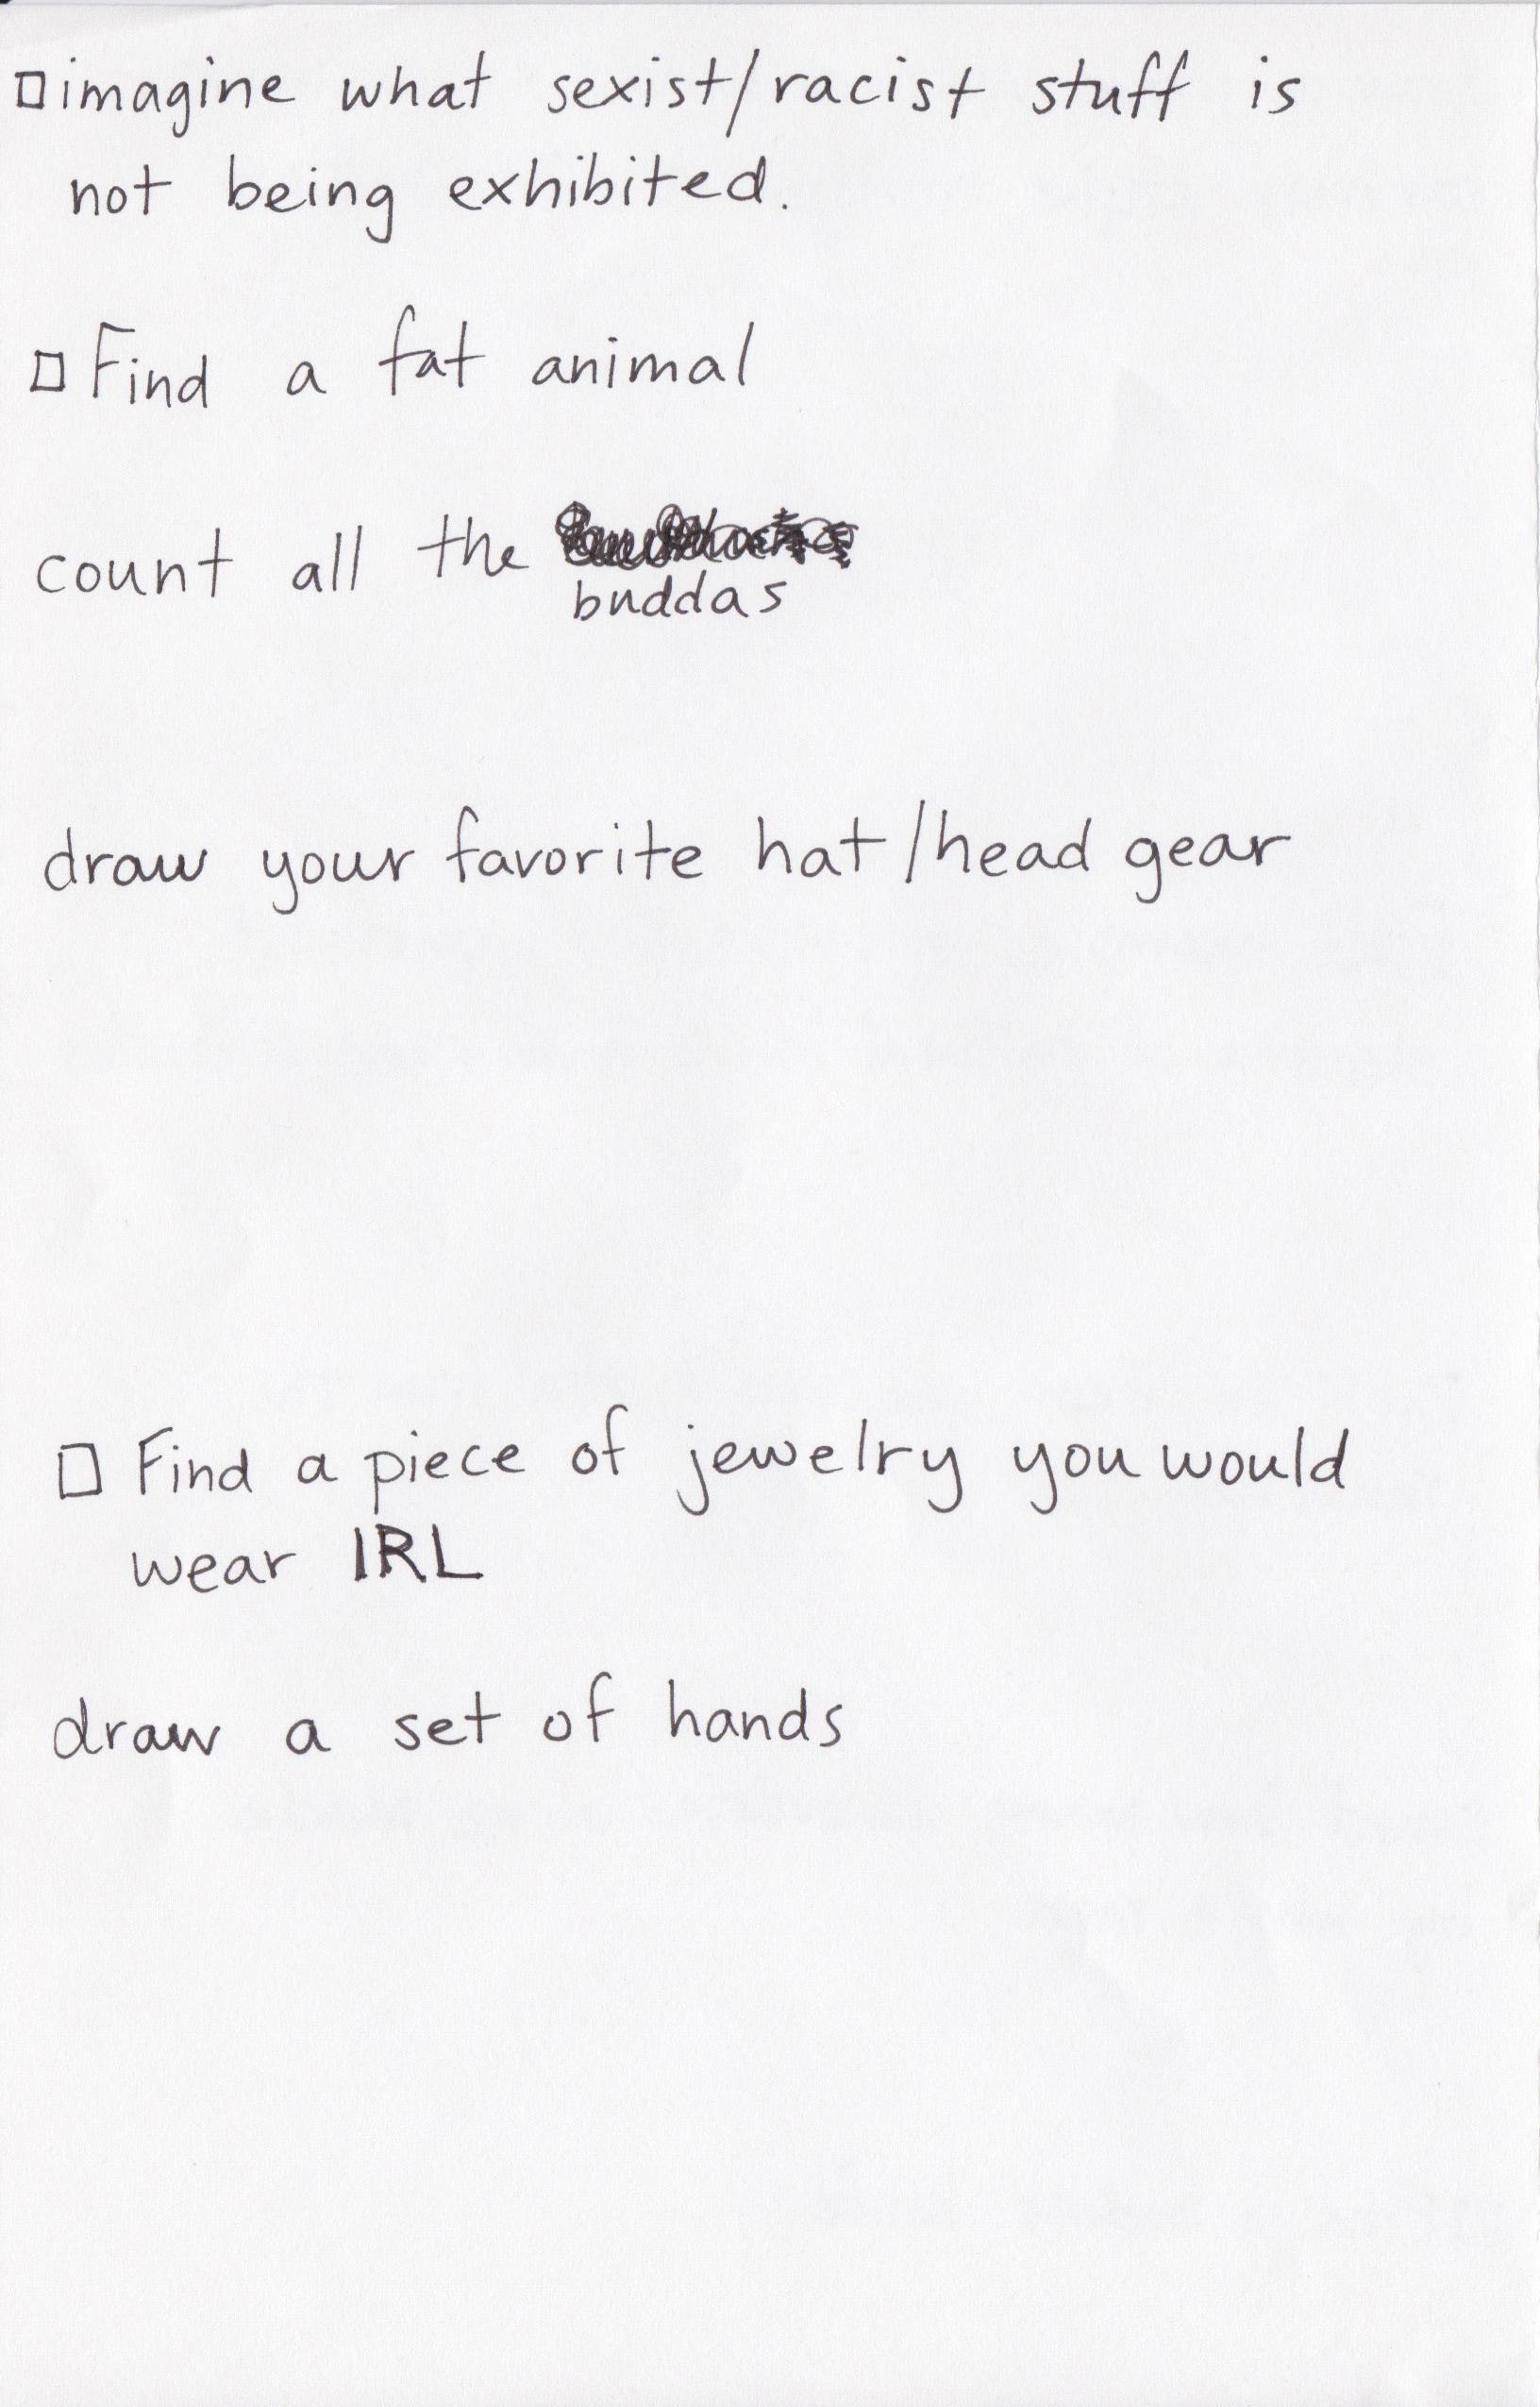 □ imagine what sexist/racist stuff is
not being exhibited.
□ Find a fat animal
count all the
buddas
draw your favorite hat/head gear
□ Find a piece of jewelry you would
wear IRL
draw a set of hands